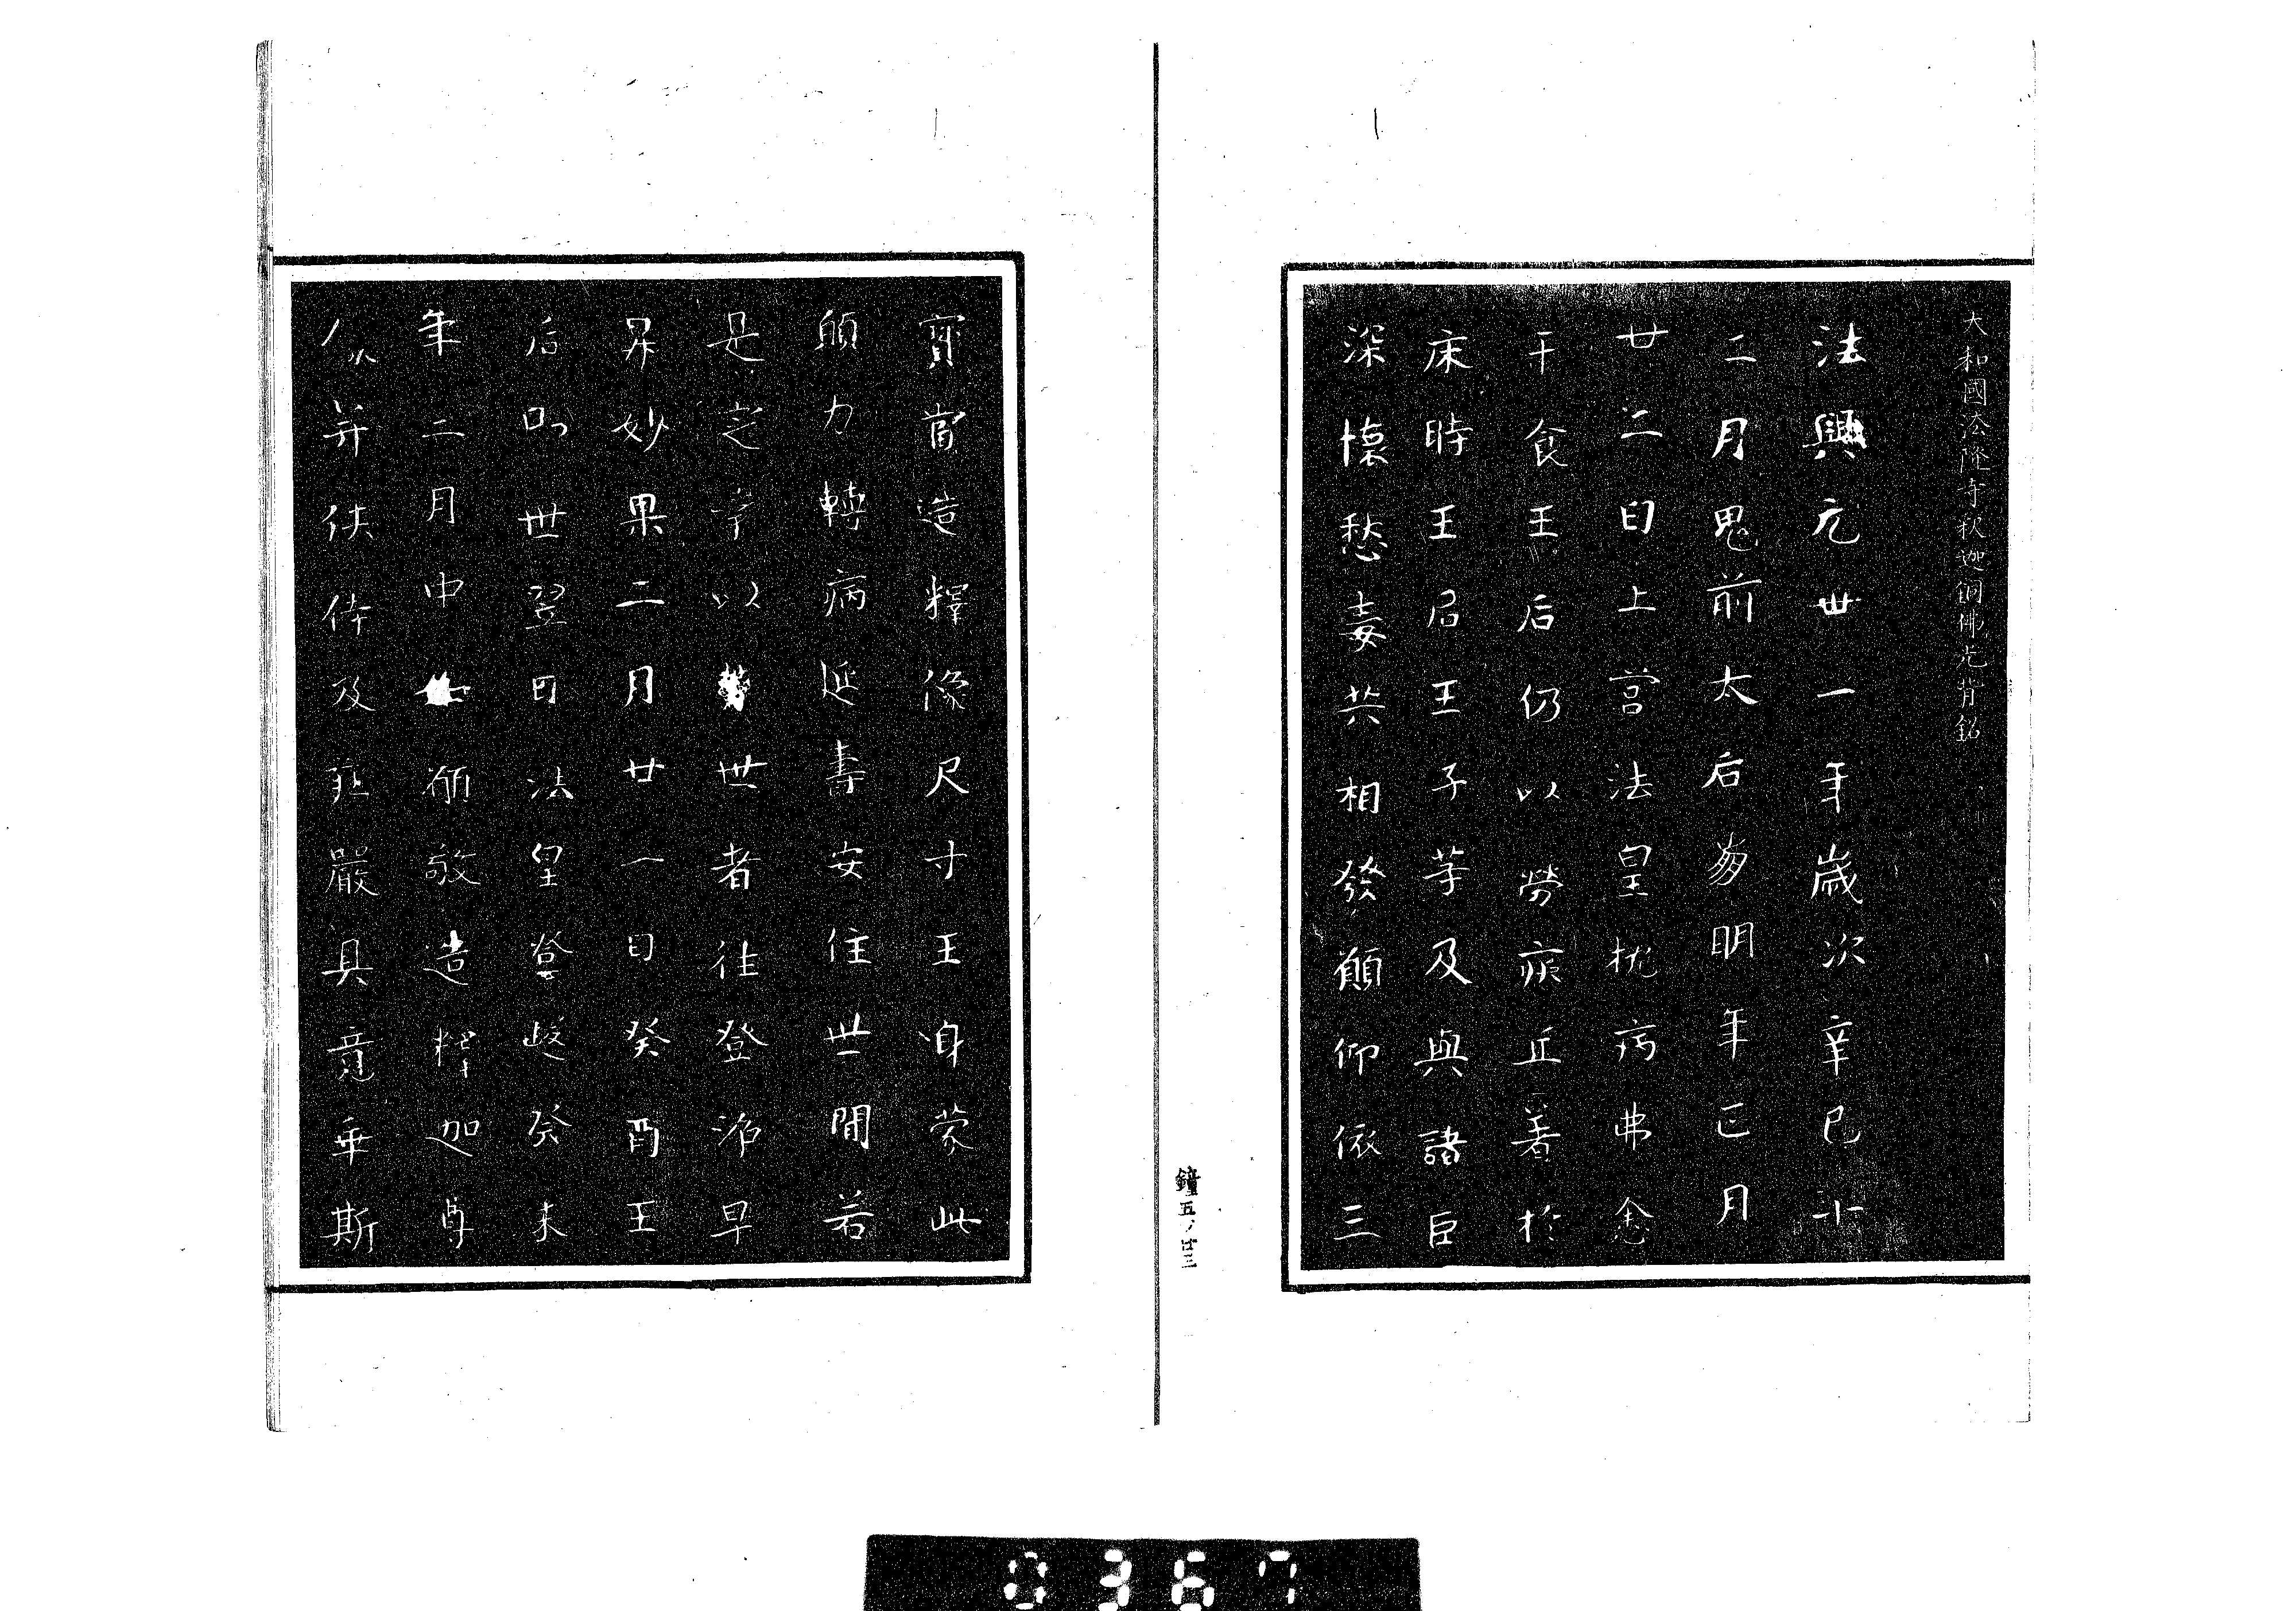 大和國法隆寺釈迦銅佛光背銘
法興元卅一年歲次辛巳十
二月鬼前太后崩明年正月
廿二日上宮法皇枕病弗悆
干食王后仍以勞疾並著於
床時王后王子等及與諸臣
深懷愁毒共相發願仰依三
寶當造釋像尺寸王身蒙此
願力轉病延壽安住世間若
是定業以背世者往登淨早
昇妙果二月廿一日癸酉王
后即世翌日法皇登遐癸未
年三月中如願敬造釋迦尊
像并俠侍及莊嚴具竟乗斯
鐘五ノ廿三
0367